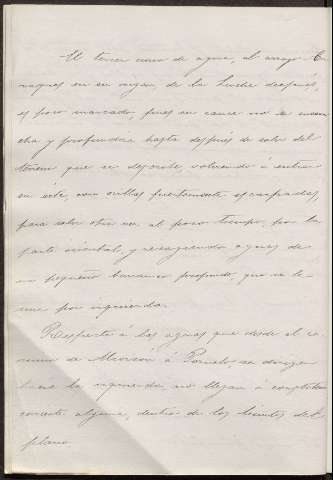 El tercer curso de agua, el arroyo
naques en su origen, de la Leche después,
es poco marcado, pues su cauce no se ensan-
cha y profundiza hasta después de salir del
terreno que se describe, volviendo á entrar
en éste, con orillas fuertemente escarpadas,
para salir otra vez al poco tiempo, por la
parte oriental, y recogiendo aguas de
un pequeño barranco profundo, que se le
une por izquierda.
Respecto á las aguas que desde el ca-
mino de Alcorcón á Pozuelo, se dirigen
hacia la izquierda, no llegan á constituir
corriente alguna, dentro de los límites del
plano.